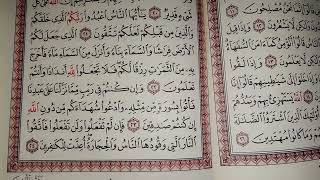 مُصْلِحُونَ
قَالُوٓا۟ أَنُؤْمِنُ كَمَآ
إِلَىٰ شَيَٰطِينِهِمْ
ٱللَّهُ يَسْتَهْزِئُ بِهِمْ وَيَمُدُّهُمْ
ٱشْتَرَوُا۟ ٱلضَّلَٰلَةَ
وَمَا كَانُوا۟ مُهْتَدِينَ
شَىْءٍ قَدِيرٌ ٢٠ يَٰٓأَيُّهَا ٱلنَّاسُ ٱعْبُدُوا۟ رَبَّكُمُ ٱلَّذِى خَلَقَكُمْ
وَٱلَّذِينَ مِن قَبْلِكُمْ لَعَلَّكُمْ تَتَّقُونَ ٢١ ٱلَّذِى جَعَلَ لَكُمُ
ٱلْأَرْضَ فِرَٰشًا وَٱلسَّمَآءَ بِنَآءً وَأَنزَلَ مِنَ ٱلسَّمَآءِ مَآءً فَأَخْرَجَ
بِهِۦ مِنَ ٱلثَّمَرَٰتِ رِزْقًا لَّكُمْ فَلَا تَجْعَلُوا۟ لِلَّهِ أَندَادًا وَأَنتُمْ
تَعْلَمُونَ ٢٢ وَإِن كُنتُمْ فِى رَيْبٍ مِّمَّا نَزَّلْنَا عَلَىٰ عَبْدِنَا
فَأْتُوا۟ بِسُورَةٍ مِّن مِّثْلِهِۦ وَٱدْعُوا۟ شُهَدَآءَكُم مِّن دُونِ ٱللَّهِ
إِن كُنتُمْ صَٰدِقِينَ ٢٣ فَإِن لَّمْ تَفْعَلُوا۟ وَلَن تَفْعَلُوا۟ فَٱتَّقُوا۟
ٱلنَّارَ ٱلَّتِى وَقُودُهَا ٱلنَّاسُ وَٱلْحِجَارَةُ أُعِدَّتْ لِلْكَٰفِرِينَ ٢٤